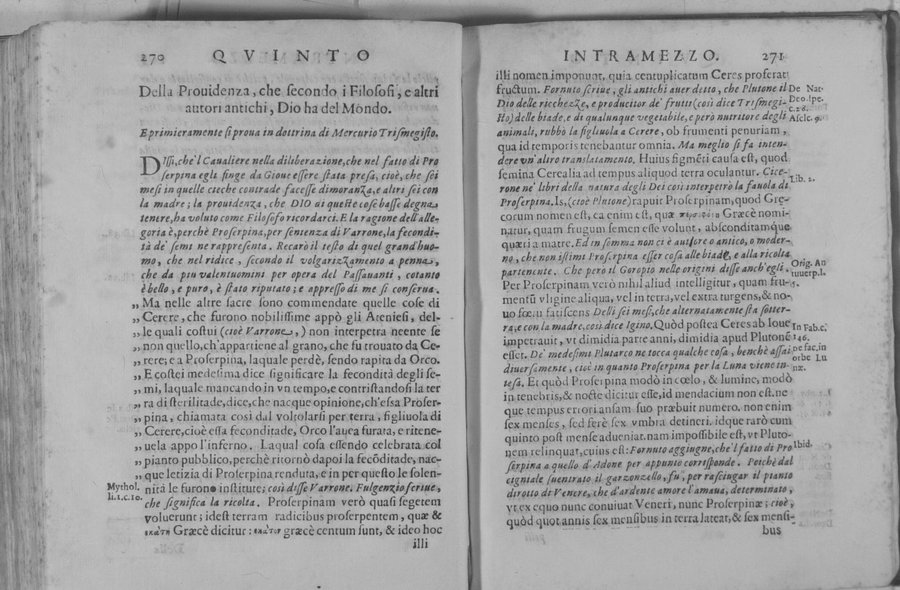 270 QVINTO
Della Prouidenza, che secondo i Filosofi, e altri
autori antichi, Dio ha del Mondo.
E primieramente si proua in dottrina di Mercurio Trismegisto.
DIssi, che'l Caualiere nella diliberazione, che nel fatto di Pro
serpina egli finge da Gioue essere stata presa, cioè, che sei
mesi in quelle cieche contrade facesse dimoranza, e altri sei con
la madre; la prouidenza, che DIO ai queste cose basse degna
tenere, ha voluto come Filosofo ricordarci. E la ragione dell'alle-
goria è, perchè Proserpina, per sentenza di Varrone, la fecondi-
tà de' semi ne rappresenta. Recarò il testo di quel grand'huo-
mo, che nel ridice, secondo il volgarizzamento a penna,
che da piu valentuomini per opera del Passauanti, cotanto
è bello, e puro, è stato riputato; e appresso di me si conserua.
„ Ma nelle altre sacre sono commendate quelle cose di
„ Cerere, che furono nobilissime appò gli Ateniesi, del-
„ le quali costui (cioè Varrone,) non interpetra neente se
„ non quello, ch'appartiene al grano, che fu trouato da Ce-
„ rere; e a Proserpina, laquale perdè, sendo rapita da Orco.
„ E costei medesima dice significare la fecondità degli se-
„ mi, laquale mancando in vn tempo, e contristandosi la ter
„ ra di sterilitade, dice, che nacque opinione, ch'essa Proser-
„ pina, chiamata così dal voltolarsi per terra, figliuola di
„ Cerere, cioè essa feconditade, Orco l'auea furata, e ritene-
„ uela appo l'inferno. Laqual cosa essendo celebrata col
„ pianto pubblico, perchè ritornò dapoi la fecōditade, nac-
„ que letizia di Proserpina renduta, e in per questo le solen-
„ nità le furono institute; così disse Varrone. Fulgenzio scriue,
che significa la ricolta. Proserpinam verò quasi segetem
voluerunt; idest terram radicibus proserpentem, quæ &
ἑκάτη Græcè dicitur: ἑκατὸν græcè centum sunt, & ideo hoc
illi
Mythol.
li.1.c.10.
INTRAMEZZO. 271
illi nomen imponunt, quia centuplicatum Ceres proferat
fructum. Fornuto scriue, gli antichi auer detto, che Plutone il
Dio delle ricchezze, e producitor de' frutti (così dice Trismegi-
sto) delle biade, e di qualunque vegetabile, e però nutritore degli
animali, rubbò la figliuola a Cerere, ob frumenti penuriam,
qua id temporis tenebantur omnia. Ma meglio si fa inten-
dere vn'altro translatamento. Huius figmēti causa est, quod
semina Cerealia ad tempus aliquod terra oculantur. Cice-
rone ne' libri della natura degli Dei così interpetrò la fauola di
Proserpina. Is, (cioè Plutone) rapuit Proserpinam, quod Gręe-
corum nomen est, ca enim est, quæ Græcè nomi-
natur, quam frugum semen esse volunt, absconditamque
quæri a matre. Ed in somma non ci è auttore o antico, o moder-
no, che non issimi Proserpina esser cosa alle biade, e alla ricolta
partenente. Che però il Goropio nelle origini disse anch'egli.
Per Proserpinam verò nihil aliud intelligitur, quam fru-
mentū vligine aliqua, vel in terra, vel extra turgens, & no-
uo fœtu fatiscens Delli sei mesi, che alternatamente sta sotter-
ra, e con la madre, così dice Igino. Quòd postea Ceres ab Ioue
impetrauit, vt dimidia parte anni, dimidia apud Plutonē
esset. De' medesimi Plutarco ne tocca qualche cosa, benchè assai
diuersamente, cioè in quanto Proserpina per la Luna viene in-
tesa. Et quòd Proserpina modò in cœlo, & lumine, modò
in tenebris, & nocte dicitur esse, id mendacium non est. ne
que tempus errori ansam suo præbuit numero. non enim
sex menses, sed serè sex vmbra detineri. idque rarò cum
quinto post mense adueniat. nam impossibile est, vt Pluto-
nem relinquat, cuius est: Fornuto aggiugne, che'l fatto di Pro
serpina a quello d'Adone per appunto corrisponde. Poichè dal
cigniale suentrato il garzonzello, fu, per rasciugar il pianto
dirotto di Venere, che d'ardente amore l'amaua, determinato,
vt ex equo nunc conuiuat Veneri, nunc Proserpinæ; cioè,
quòd quot annis sex mensibus in terra lateat, & sex mensi-
bus
De Nat
Deo. spe.
c.28.
Ascle. 9.
Lib. 2.
Orig. An
tuuerp.l.
5.
In Fab. c.
146.
ne fac. in
orbe Lu
næ.
Ibid.